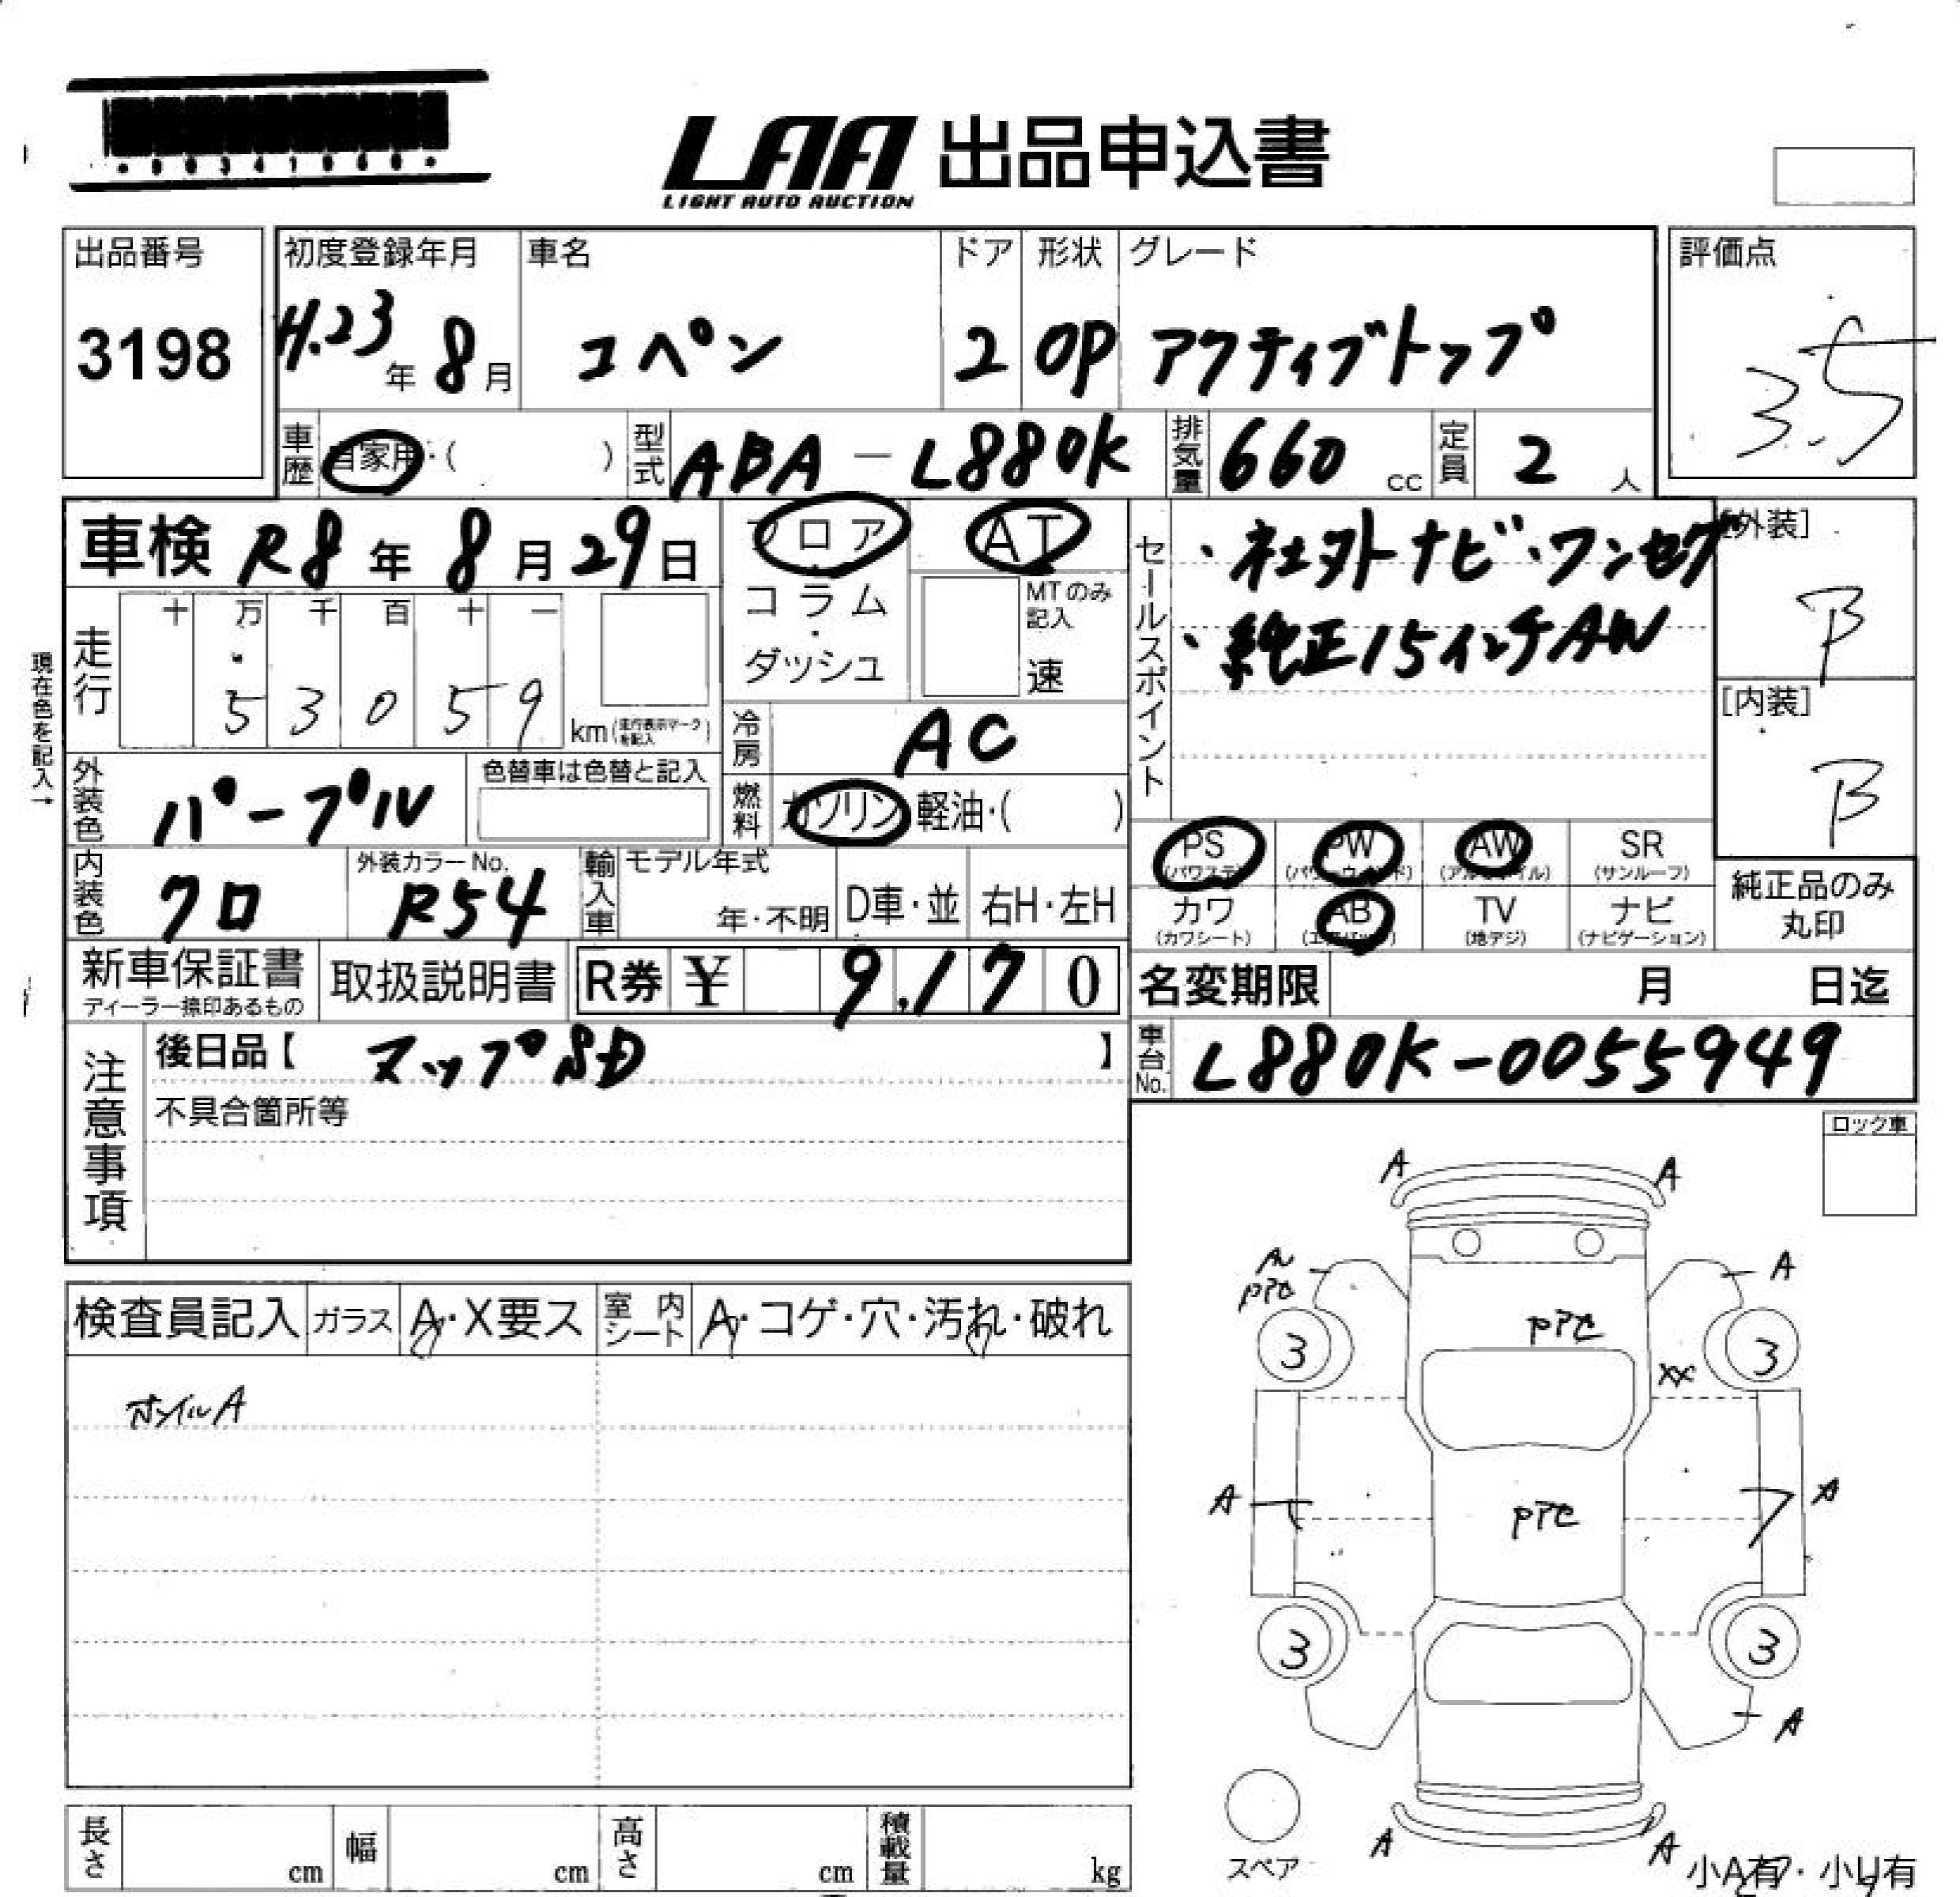 LAA 出品申込書
LIGHT AUTO AUCTION
出品番号
3198
初度登録年月
H.23年 8月
車名
コペン
ドア
2
形状
OP
グレード
アクティブトップ
評価点
3.5
車歴 自家用・( )
型式 ABA-L880K
排気量 660 cc
定員 2 人
車検 R8年 8月 29日
フロア
コラム
・
ダッシュ
AT
MTのみ記入
速
セールスポイント
・社外ナビ・ワンセグ
・純正15インチAW
[外装]
B
[内装]
B
現在色を記入→
走行
十 万 千 百 十 一
5 3 0 5 9
km (走行表示マークを記入)
冷房 AC
外装色 パープル
色替車は色替と記入
燃料 ガソリン 軽油・( )
PS (パワステ)
PW (パワーウィンド)
AW (アルミホイル)
SR (サンルーフ)
カワ (カワシート)
AB (エアバッグ)
TV (地デジ)
ナビ (ナビゲーション)
純正品のみ丸印
内装色 クロ
外装カラーNo. R54
輸入車
モデル年式
年・不明
D車・並
右H・左H
新車保証書
ディーラー捺印あるもの
取扱説明書
R券 ¥ 9,170
名変期限 月 日迄
注意事項
後日品【 マップSD 】
車台No. L880K-0055949
不具合箇所等
ロック車
検査員記入
ガラス A・X要ス
室内シート A・コゲ・穴・汚れ・破れ
ホイルA
A A
A
PPC
A
PPC
3 3
XX
A A
PPC
3 3
A
A A
スペア
小A有・小U有
長さ cm
幅 cm
高さ cm
積載量 kg